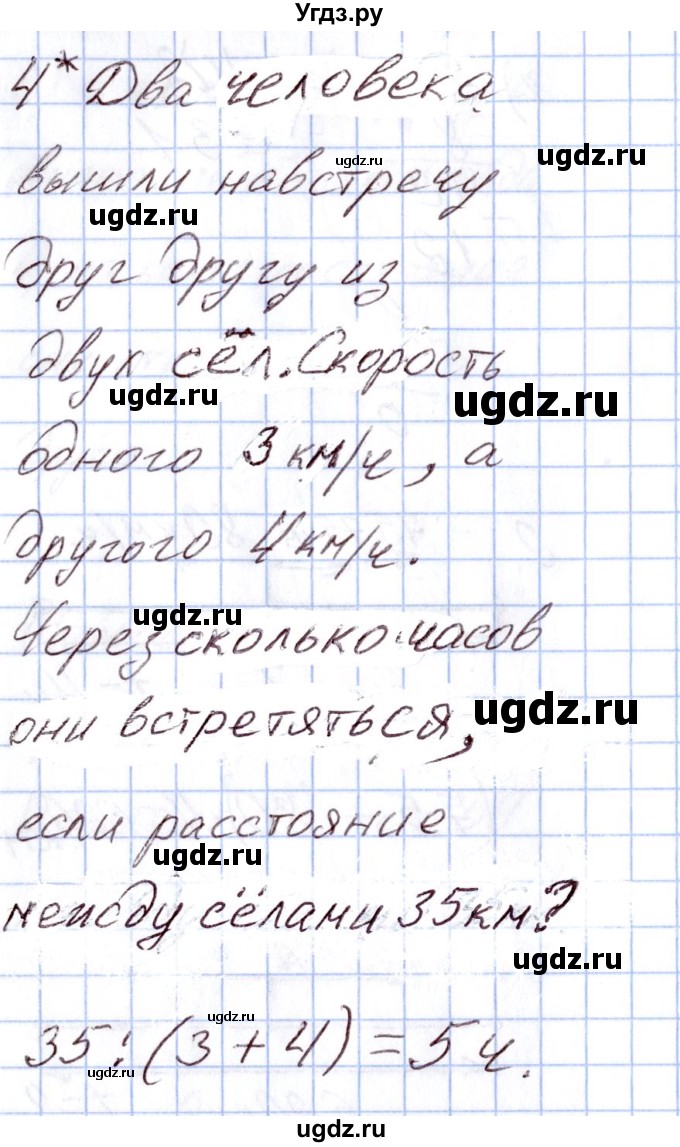 Угдз.ру
4* Два человека
ugdz.ru
ugdz.ru
вышли навстречу
ugdz.ru
друг другу из
двух сёл. Скорость
ugdz.ru
ugdz.ru
одного 3 км/ч, а
другого 4 км/ч.
ugdz.ru
Через сколько часов
ugdz.ru
они встретяться,
если расстояние
ugdz.ru
между сёлами 35 км?
ugdz.ru
ugdz.ru
35:(3+4)=5 ч.
ugdz.ru
ugdz.ru